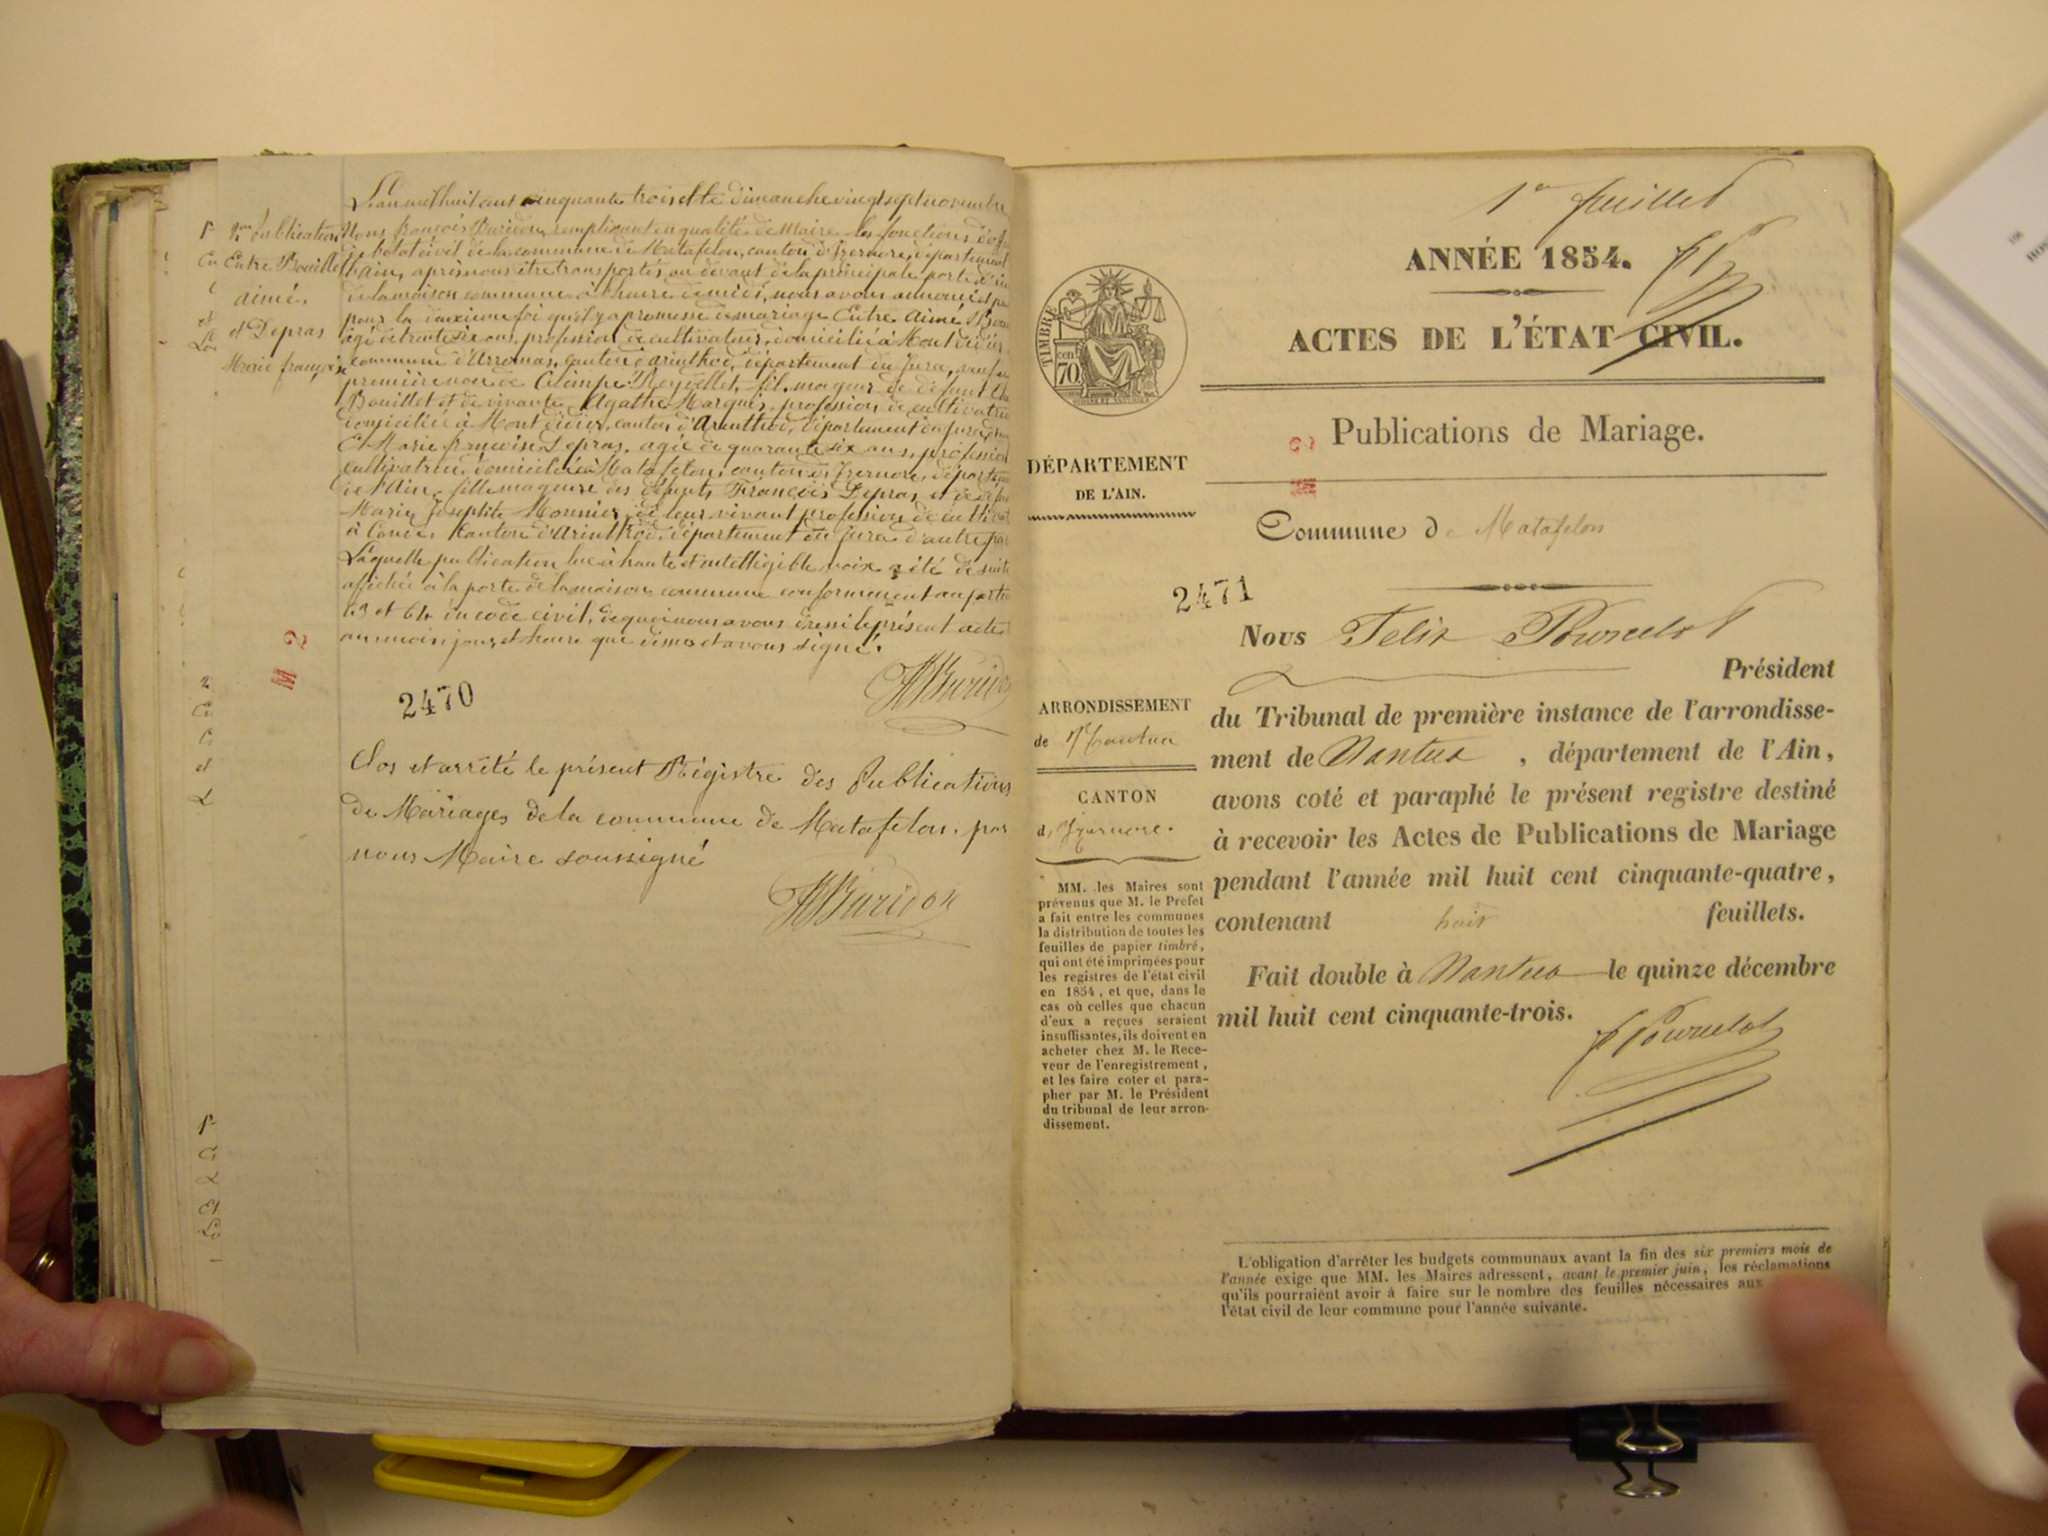 L'an mil huit cent cinquante trois et le dimanche vingt sept novembre
Nous françois Buridon, remplissant en qualité de Maire les fonctions d'off
de la commune de Matafelon, canton d'Izernore, département
de l'ain, après nous être transportés au devant de la principale porte d'
de la maison commune à l'heure de midi, nous avons annoncé et
pour la deuxieme foi qu'il y a promesse de mariage Entre Aimé Bou
agé de trente six ans, profession de cultivateur, domicilié à Mont
commune d'Arromas, canton d'arinthod, département du Jura, veuf en
premiere noce de Reydellet, fils mageur de defunt
Bouillet et de vivante Agathe Marquis, profession de cultivatrice
domiciliée à Mont canton d'Arinthod, département du Jura,
Et Marie françoise Depras, agée de quarante six ans, profession
cultivatrice, domiciliée à Matafelon, canton d'Izernore, départem
de l'Ain, fille mageure des défunts François Depras et de défun
Marie Josephte Mounier, de leur vivant profession de cultivat
à Condes, Canton d'Arinthod, département du Jura d'autre par
Laquelle publication lue à haute et intelligible voix a été de suite
affichée à la porte de la maison commune conformément aux artic
63 et 64 du code civil, de quoi nous avons dressé le présent acte
au mois, jour, et heure que dessus et avons signé.
2me Publication
Entre Bouillet
aimé.
et Depras
Marie françoise
Buridon
M 2
2470
Clos et arrêté le présent Régistre des Publications
de Mariages de la commune de Matafelon, par
nous Maire soussigné
Buridon
1er feuillet
ANNÉE 1854.
ACTES DE L'ÉTAT CIVIL.
TIMBRE
cen
70
Publications de Mariage.
DÉPARTEMENT
DE L'AIN.
Commune de Matafelon
2471
Nous Felix Pourcelot
Président
ARRONDISSEMENT
de Nantua
CANTON
d'Izernore.
du Tribunal de première instance de l'arrondisse-
ment de Nantua , département de l'Ain,
avons coté et paraphé le présent registre destiné
à recevoir les Actes de Publications de Mariage
pendant l'année mil huit cent cinquante-quatre,
contenant huit feuillets.
Fait double à Nantua le quinze décembre
mil huit cent cinquante-trois.
F Pourcelot
MM. les Maires sont
prévenus que M. le Préfet
a fait entre les communes
la distribution de toutes les
feuilles de papier timbré,
qui ont été imprimées pour
les registres de l'état civil
en 1854, et que, dans le
cas où celles que chacun
d'eux a reçues seraient
insuffisantes, ils doivent en
acheter chez M. le Rece-
veur de l'enregistrement,
et les faire coter et para-
pher par M. le Président
du tribunal de leur arron-
dissement.
L'obligation d'arrêter les budgets communaux avant la fin des six premiers mois de
l'année exige que MM. les Maires adressent, avant le premier juin, les réclamations
qu'ils pourraient avoir à faire sur le nombre des feuilles nécessaires aux
l'état civil de leur commune pour l'année suivante.